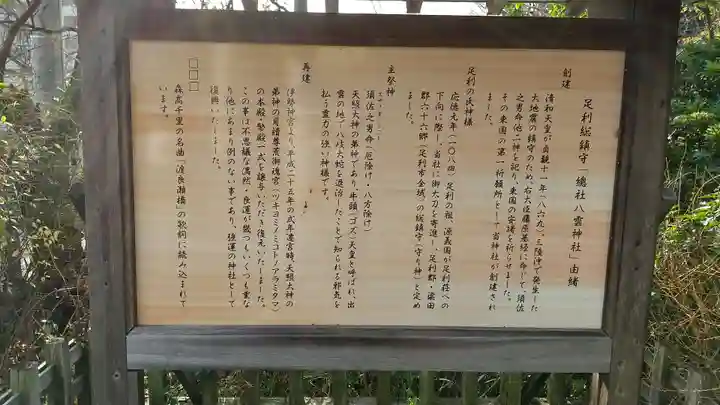 足利総鎮守「總社八雲神社」由緒
創建
清和天皇が貞観十一年(八六九)、三陸沖で発生した
大地震の鎮守のため、右大臣藤原基経に命じて、須佐
之男命他二神を祀り、東国の安堵を祈らせました。
その東国の第一祈願所として当神社が創建され
ました。
足利の氏神様
応徳元年(一〇八四)足利の祖、源義国が足利荘への
下向に際し、当社に御太刀を寄進し、足利郡・梁田
郡六十六郷(足利市全域)の総鎮守(守り神)と定め
ました。
主祭神
須佐之男命(厄除け・八方除け)
天照大神の弟神であり、牛頭(ゴズ)天皇と呼ばれ、出
雲の地で八岐大蛇を退治したことで知られる邪気を
払う霊力の強い神様です。
再建
伊勢神宮より、平成二十五年の式年遷宮時、天照大神の
弟神の月讀尊荒御魂宮(ツキヨミノミコトノアラミタマ)
の本殿・祭殿一式を譲与いただき、復元いたしました。
この事は不思議な偶然・良運が幾つもいくつも重な
り他にあまり例のない事であり、強運の神社として
復興いたしました。
□□□
森高千里の名曲「渡良瀬橋」の歌詞に読み込まれて
います。